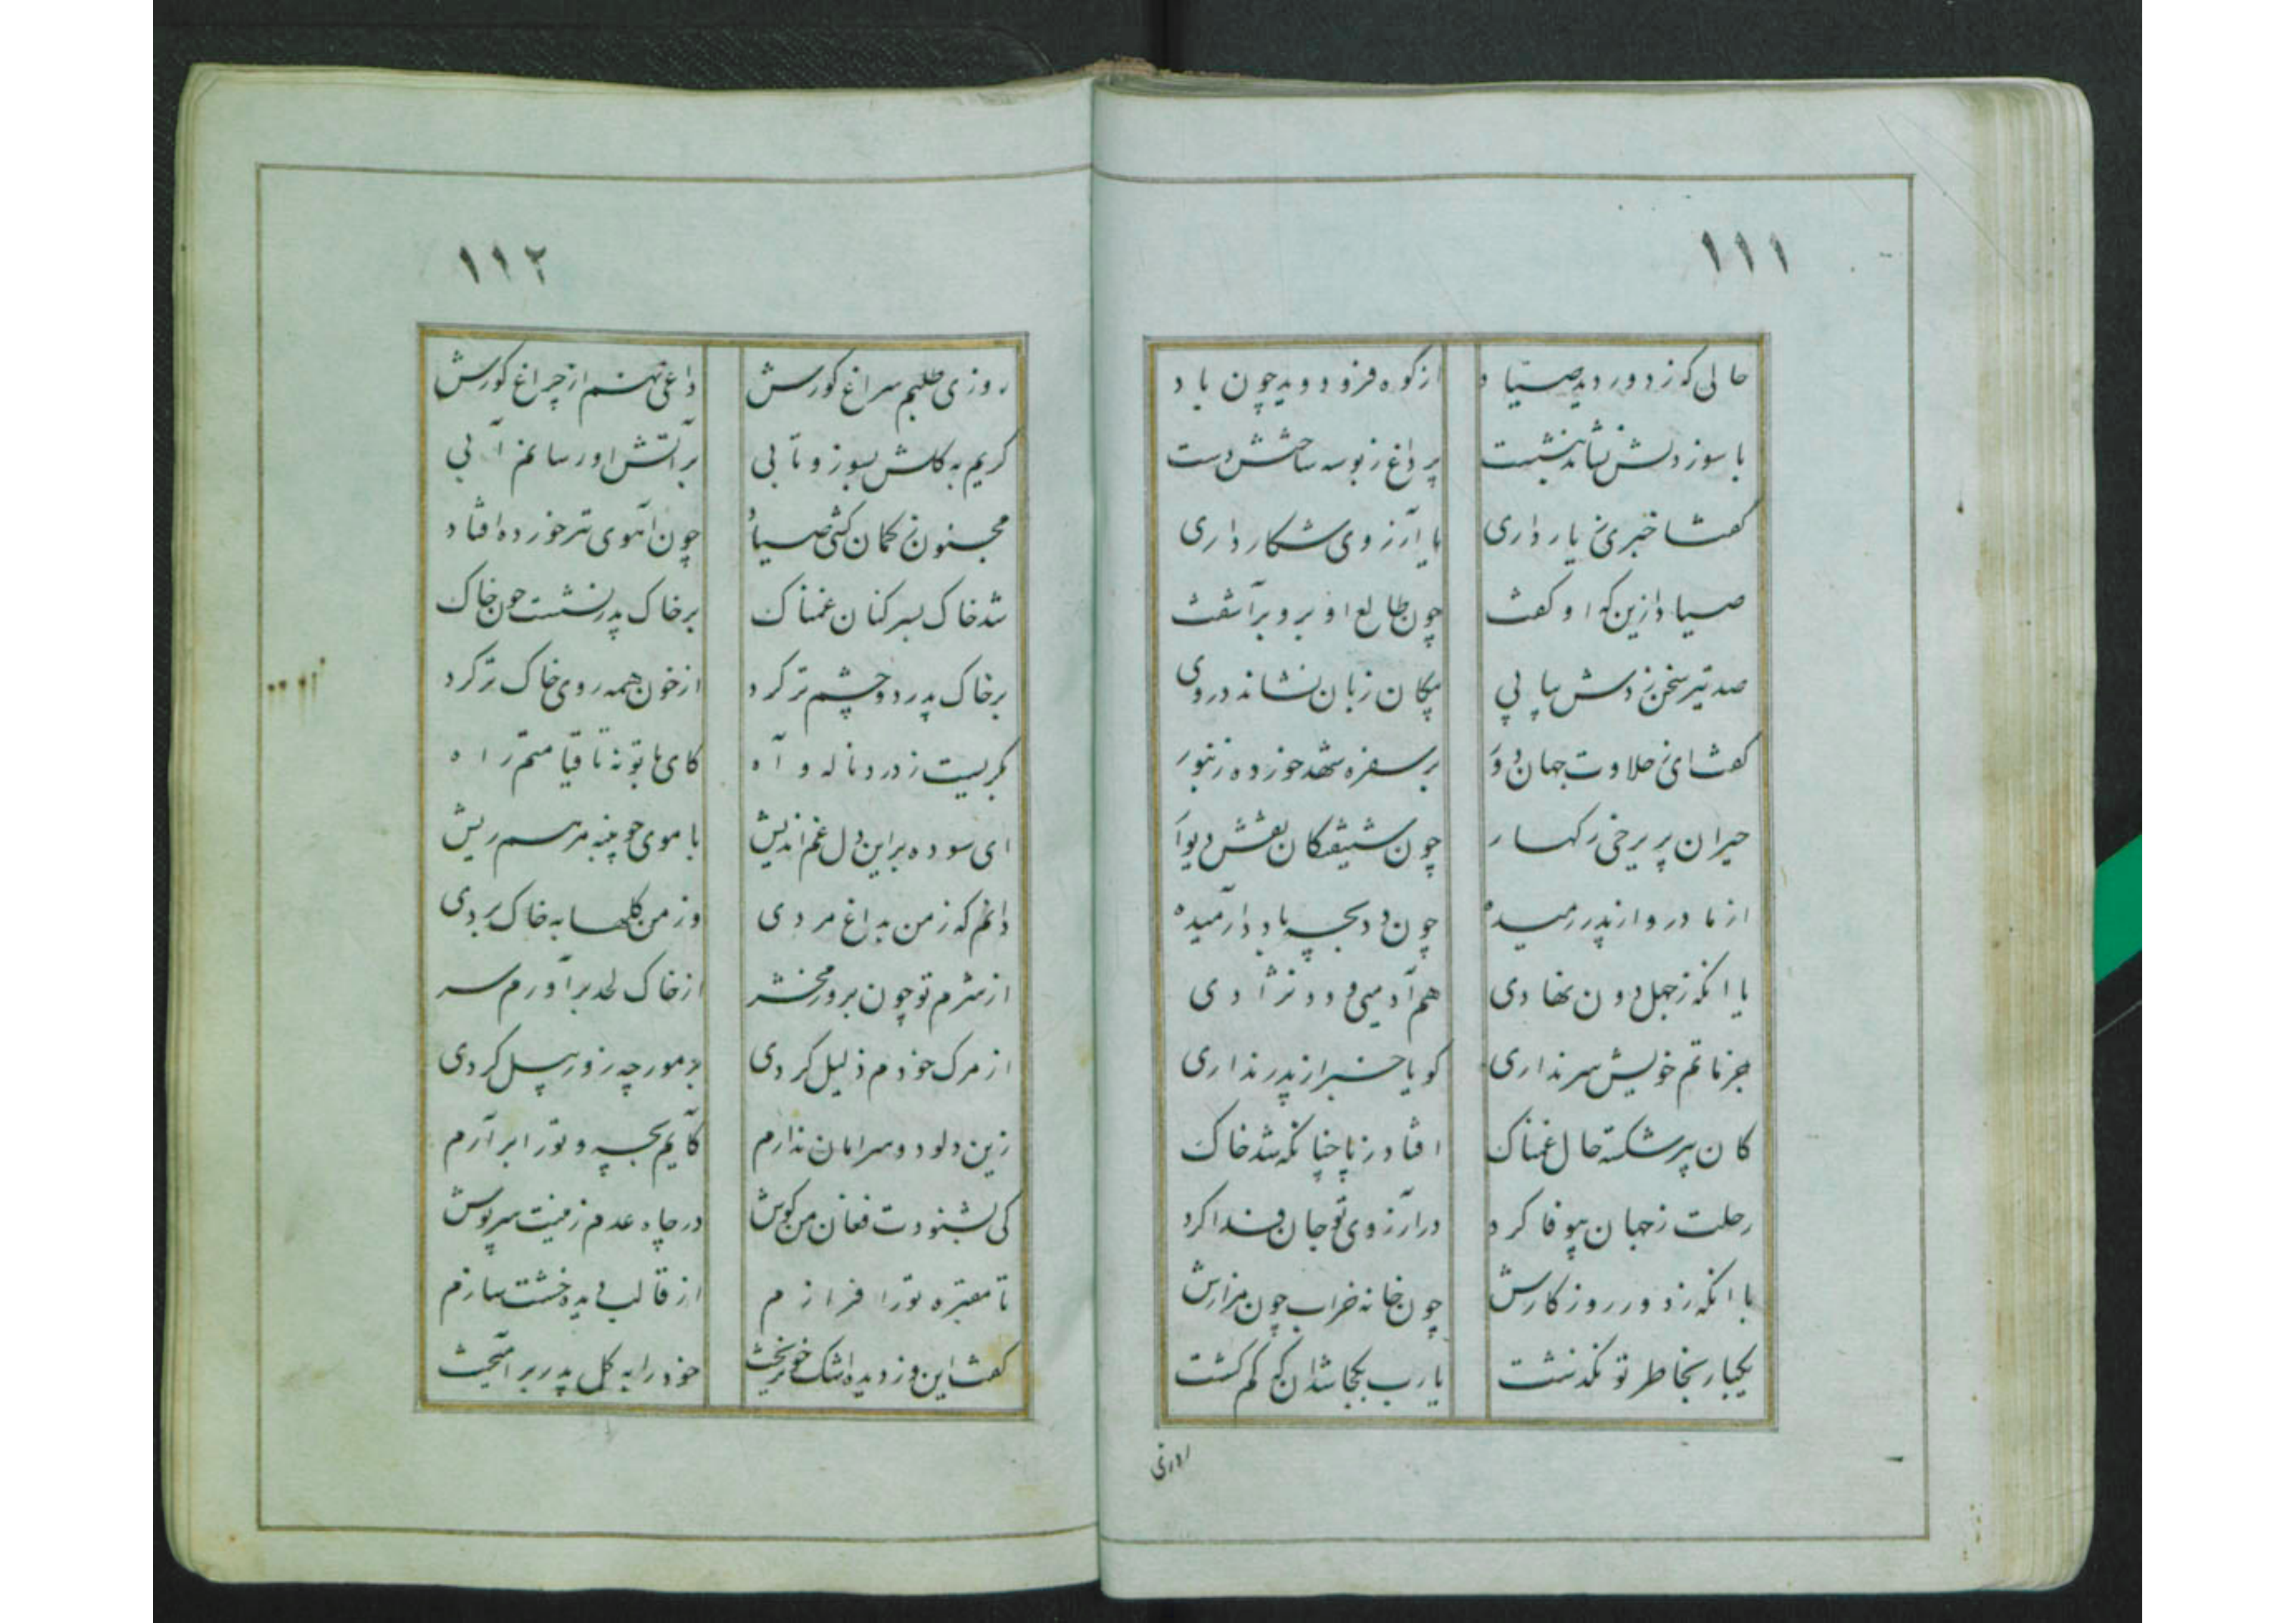 ۱۱۱
حالی که ز دور دید صیاد از کوه فرو دوید چون باد
با سوز دلش نشاند بنشست پر داغ ز بوسه ساختش دست
گفتا خبری ز یار داری یا آرزوی شکار داری
صیاد ازین که او گفت چون طالع او برو برآشفت
صد تیر سخن زدش پیاپی پیکان زبان نشاند در وی
گفتا ای ز حلاوت جهان دور بر سفره شهد خورده زنبور
حیران پریرخی ز کهسار چون شیفتگان نقش دیوار
از مادر و از پدر رمیده چون دد بچه با دد آرمیده
یا انکه ز جهل دون نهادی هم آدمیی و دد نژادی
جز ماتم خویش سر نداری گویا خبر از پدر نداری
کان پیر شکسته حال غمناک افتاد ز پا چنانکه شد خاک
رحلت ز جهان بیوفا کرد در آرزوی تو جان فدا کرد
با انکه ز دور روزکارش چون خانه خراب چون مزارش
یکبار بخاطر تو نگذشت یارب بکجا شد ان که گم گشت
روزی
۱۱۲
روزی طلبم سراغ گورش داغی نهم از چراغ گورش
گریم به گلش بسوز و تابی بر آتش او رسانم آبی
مجنون ز کمان کشی صیاد چون آهوی تیر خورده افتاد
شد خاک بسر کنان غمناک بر خاک پدر نشست چون خاک
بر خاک پدر دو چشم تر کرد از خون همه روی خاک تر کرد
بگریست ز درد ناله و آه کای با تو نه تا قیامتم راه
ای سوده براین دل غم اندیش با موی چو پنبه مرهم ریش
دانم که ز من بداغ مردی وز من گلها به خاک بردی
از شرم تو چون بروز محشر از خاک لحد برآورم سر
از مرگ خودم ذلیل کردی بر مورچه زور پیل کردی
زین دلو دو سر امان ندارم کآیم بچه و تو را برآرم
کی بشنودت فغان من گوش در چاه عدم ز نیست سرپوش
تا مقبره تو را فرازم از قالب دیده خشت سازم
گفت این وز دیده اشک خون ریخت خود را به گل پدر برآمیخت